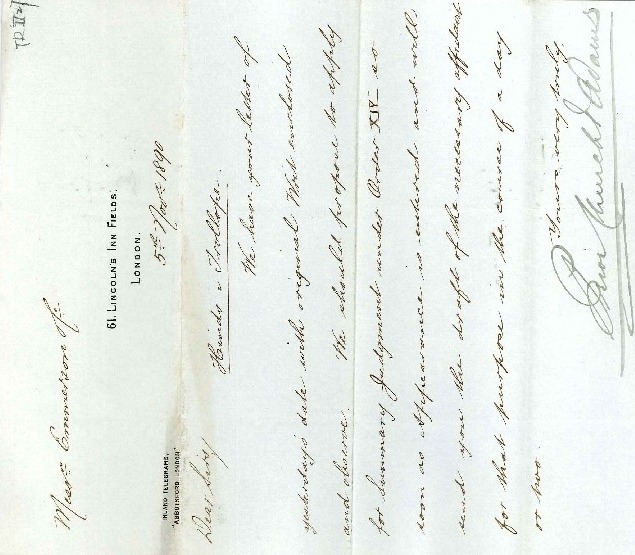 61, LINCOLN'S INN FIELDS,
LONDON.
5th Novr. 1890
INLAND TELEGRAMS,
"ABBOTSFORD LONDON"
Dear Sirs,
v Trollope.
We have your letter of
yesterday's date with original Writ enclosed
and observe. We should propose to apply
for Summary Judgment under Order XIV so
soon as Appearance is entered and will
send you the draft of the necessary affidavit
for that purpose in the course of a day
or two.
Yours very truly
Church & Adams
Messrs. Emmerson &